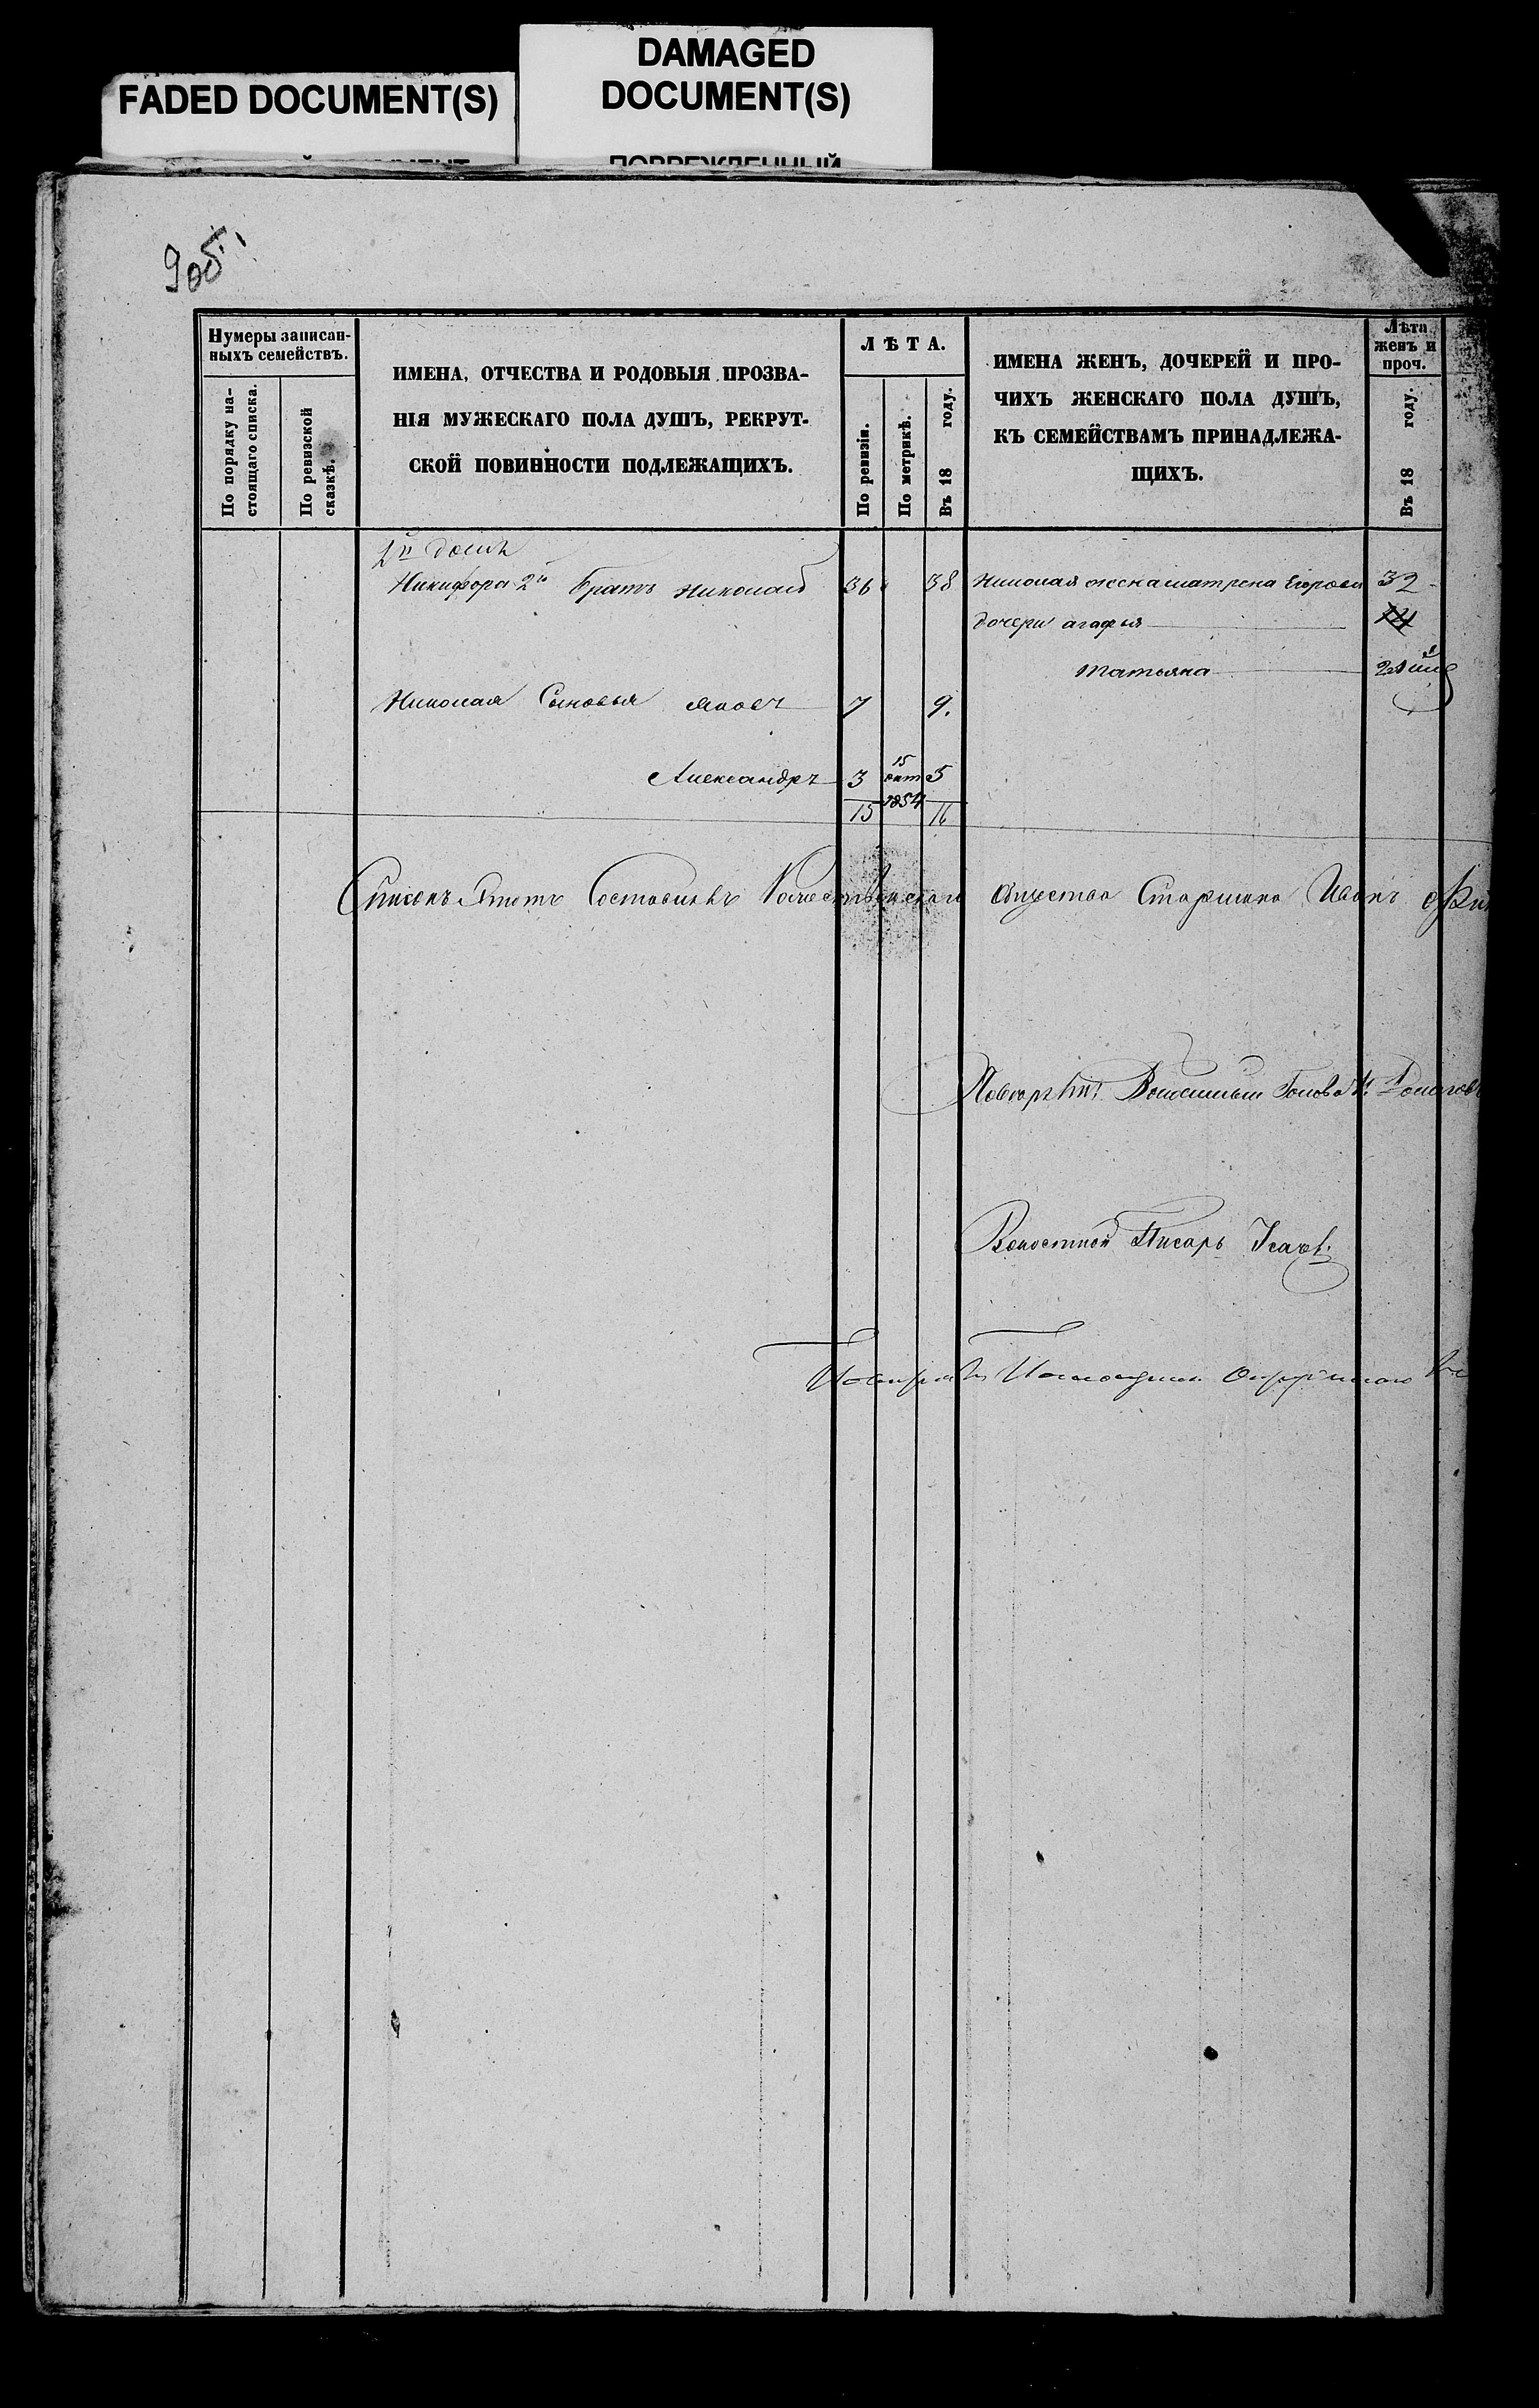 FADED DOCUMENT(S)
DAMAGED
DOCUMENT(S)
ПОВРЕЖДЕННЫЙ
9об
Нумеры записан-
ныхъ семействъ.
По порядку на-
стоящаго списка.
По ревизской
сказкѣ.
ИМЕНА, ОТЧЕСТВА И РОДОВЫЯ ПРОЗВА-
НІЯ МУЖЕСКАГО ПОЛА ДУШЪ, РЕКРУТ-
СКОЙ ПОВИННОСТИ ПОДЛЕЖАЩИХЪ.
ЛѢТА.
По ревизіи.
По метрикѣ.
Въ 18 году.
ИМЕНА ЖЕНЪ, ДОЧЕРЕЙ И ПРО-
ЧИХЪ ЖЕНСКАГО ПОЛА ДУШЪ,
КЪ СЕМЕЙСТВАМЪ ПРИНАДЛЕЖА-
ЩИХЪ.
Лѣта
женъ и
проч.
Въ 18 году.
2й домъ
Никифора 2го братъ Николай 36 38 Николая жена матрена Егорова 32
дочери агафья 14
татьяна
Николая Сыновья Яковъ 7 9.
Александръ 3 15 окт 1854 5
15 16
Списокъ Этотъ Составилъ общества Старшина Иванъ
Повѣрялъ Волостный Голова
Волостной Писарь
Повѣрялъ Помощникъ Окружнаго